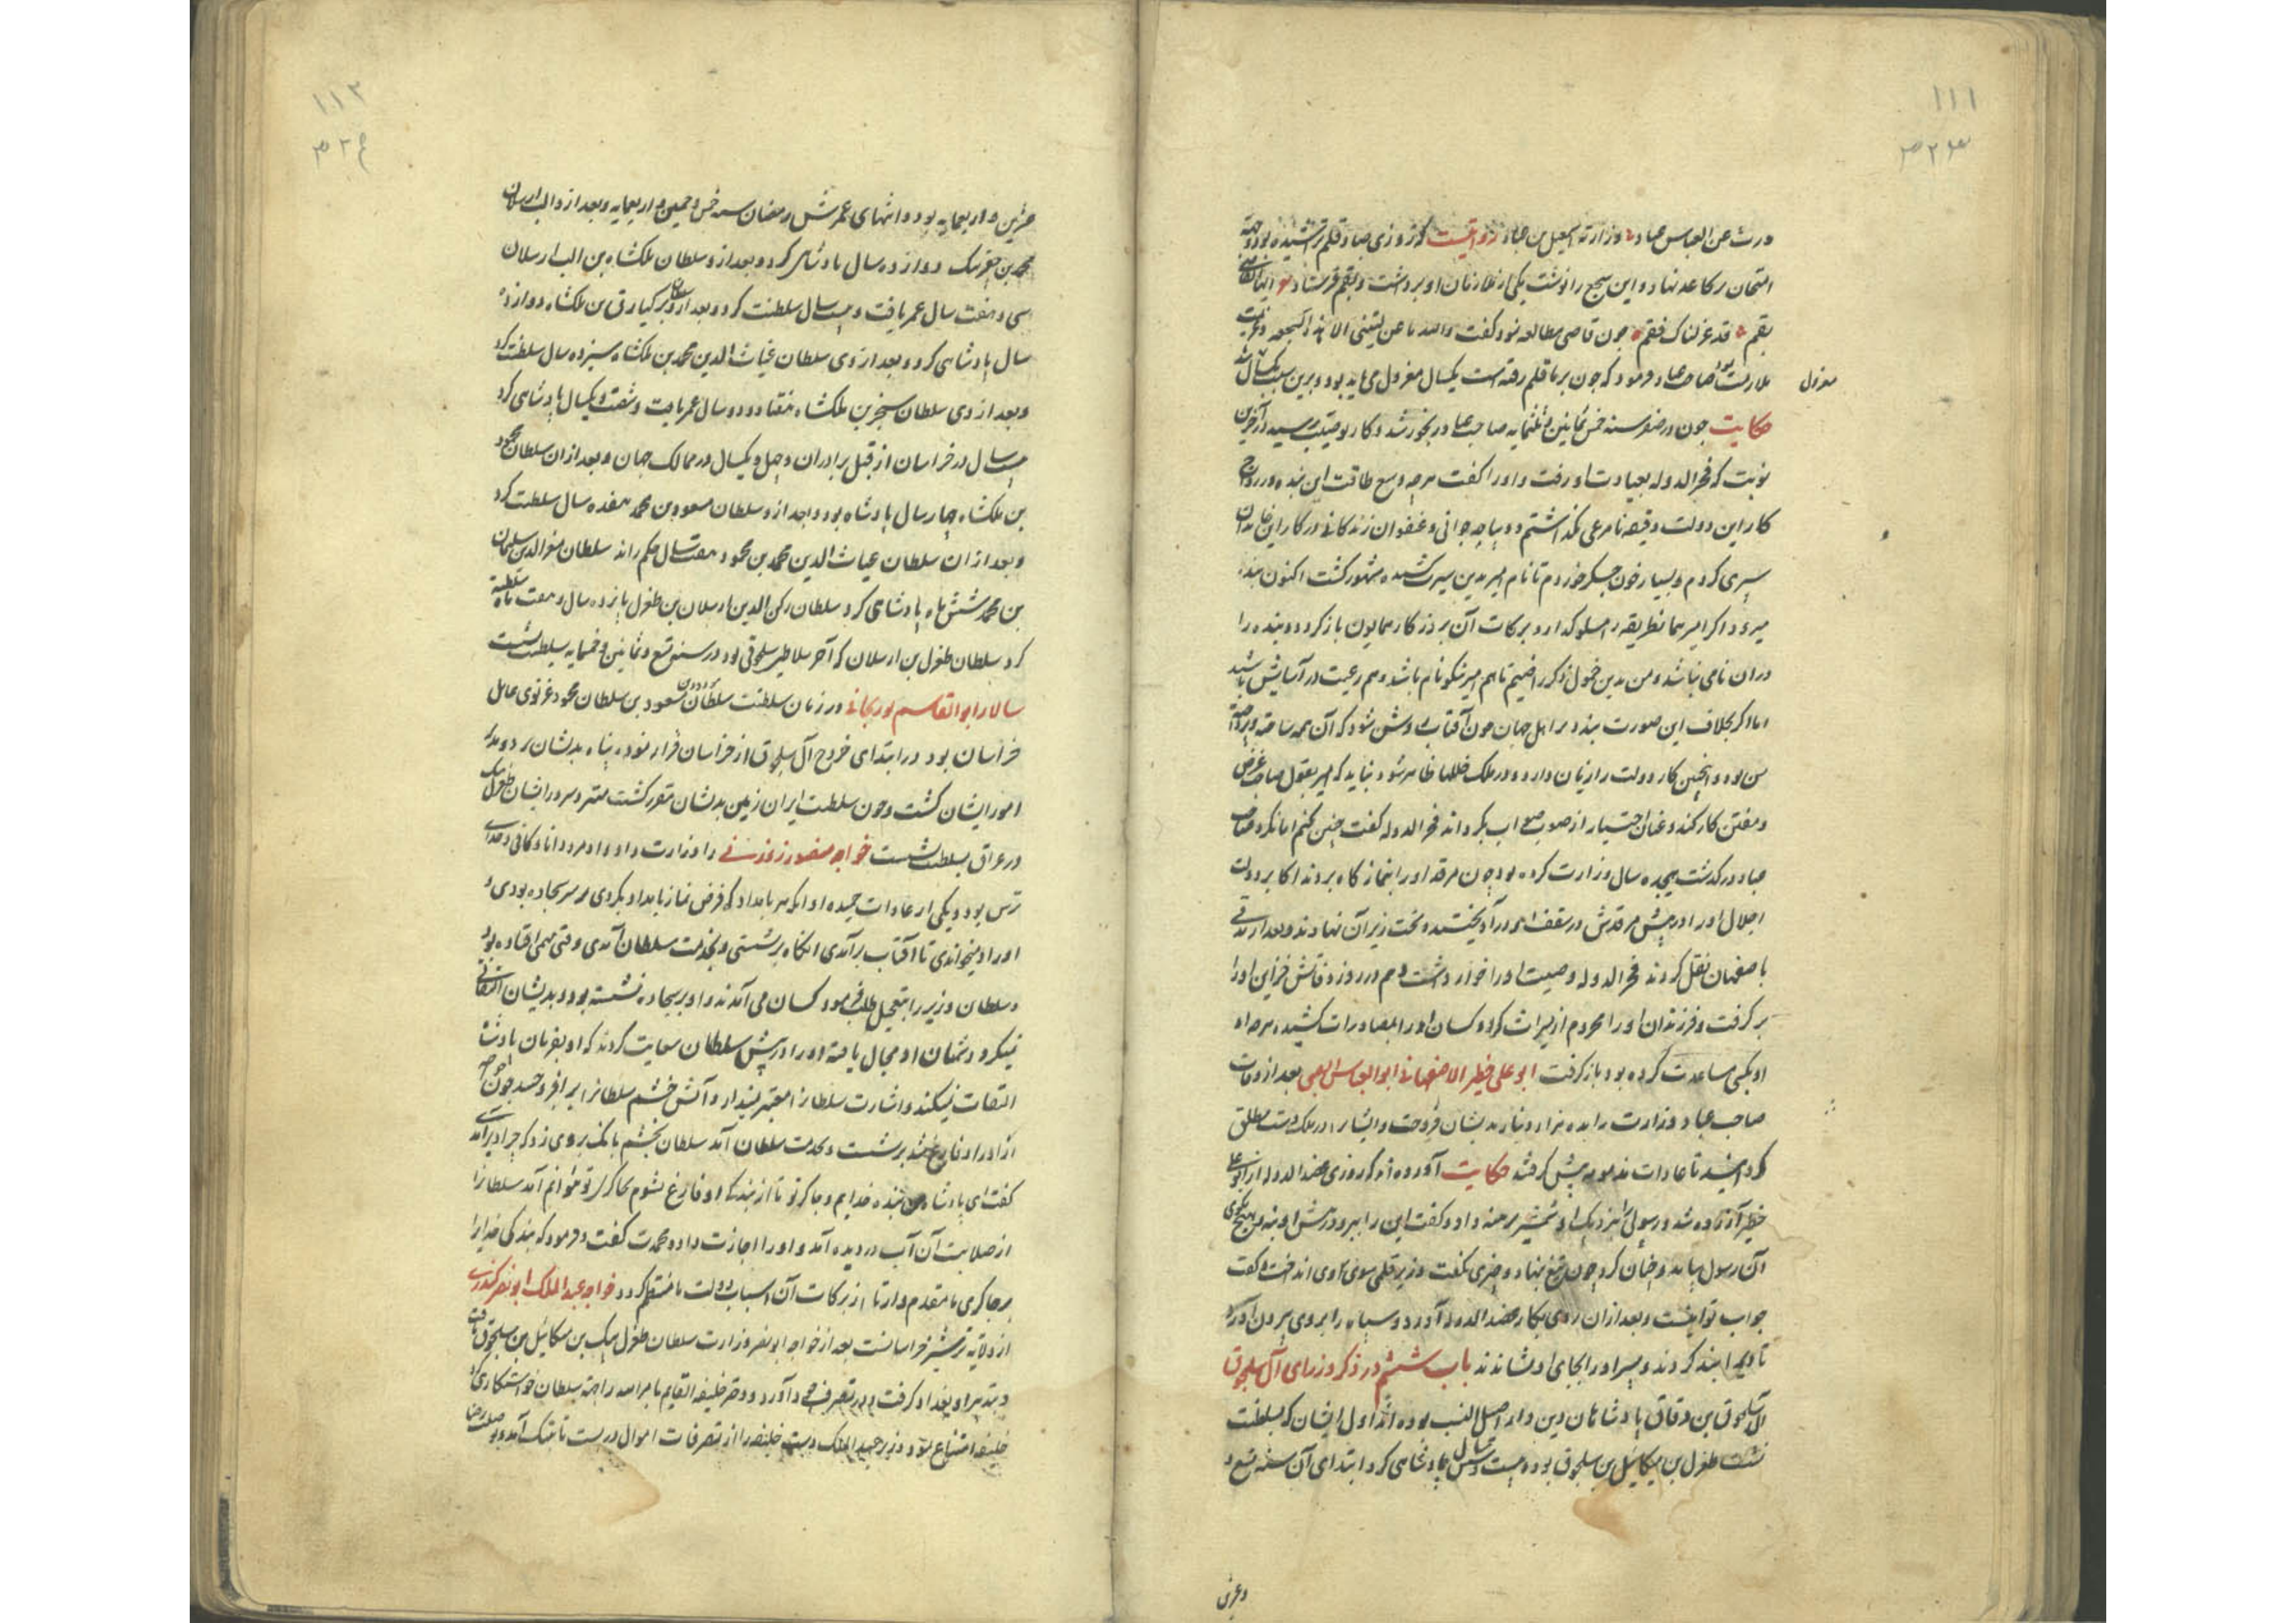 ۱۱۱
ورث عن العباس عباد وزارته اسمعیل بن عباد روایتست که روزی صاد قلم تراشیده بود و جهة
امتحان بر کاغد نهاد و این سجع را نوشت یکی از ملازمان او برداشت و بقم فرستاد ایها القاضی
بقم قد عزلناک فقم چون قاضی مطالعه نمود گفت والله ما عزلتنی الا هذه السجعه و
ملازمت صاحب عباد فرمود که چون بر ما قلم رفته است یکسال معزول می باید بود و برین سبب یکسال
معزول بود
حکایت چون در صفر سنه خمس ثمانین و ثلثمایه صاحب عباد رنجور شد و کار بوصیت رسید در آخرین
نوبت که فخر الدوله بعیادت او رفت و او را گفت هر چه وسع طاقت این بنده در رواج
کار این دولت دقیقه نامرعی نگذاشتم و دیباجه جوانی و عنفوان زندگانی در کار این خاندان
سپری کردم و بسیار خون جگر خوردم تا نام امیر بدین سیرت کشیده مشهور گشت اکنون بنده
میرود اگر امیر همان طریقه را مسلوک دارد برکات آن بروزگار همایون باز گردد و بنده را
در آن نامی نباشد و من بدین خمول ذکر راضیم تا هم امیر نیکو نام باشد و هم رعیت در آسایش باشند
اما اگر بخلاف این صورت بندد بر اهل جهان چون آفتاب روشن شود که آن همه ساخته و پرداخته
من بود و انچنین کار دولت را زیان دارد و در ملک خللها ظاهر شود نباید که امیر بقول صاحب غرض
و مفتن کار کند و عنان اختیار از صوب صواب بگرداند فخر الدوله گفت چنین کنم اما نکرد صاحب
عباد در گذشت هیجده سال وزارت کرده بود چون مرقد او را بنمازگاه بردند اکابر دولت
اجلال او را در پیش مرقدش در سقف در آویختند و تخت زیر آن نهادند و بعد از مدتی
باصفهان نقل کردند فخر الدوله وصیت او را خوار داشت و هم در روز وفاتش خزاین او را
بر گرفت و فرزندان او را محروم از میراث کرد و کسان او را بمصادرات کشیده هر چه او
با کسی مساعدت کرده بود باز گرفت ابو علی خطیر الاصفهانی ابو العباس الضبی بعد از وفات
صاحب عباد وزارت را بده هزار دینار بدیشان فروخت و ایشان را در ملک دست مطلق
گردانید تا عادات مذمومه پیش گرفتند حکایت آورده اند که روزی عضد الدوله از ابو علی
خطیر آزرده شد و رسولی را بنزدیک او شمشیر برهنه داد و گفت این را ببر و در پیش او بنه و هیچ مگوی
آن رسول بیامد و چنان کرد چون تیغ بنهاد و چیزی نگفت وزیر قلمی سوی وی انداخت و گفت
جواب تو اینست و بعد از آن روی بکار عضد الدوله آورد و سپاه را بروی بیرون آورد
تا ویرا بند کردند و پسر او را بجای او نشاندند باب ششم در ذکر وزرای آل سلجوق
آل سلجوق بن دقاق پادشاهان دین دار اصیل النسب بوده اند اول ایشان که بسلطنت
نشست طغرل بن میکائیل بن سلجوق بوده بیست و شش سال پادشاهی کرد ابتدای آن سنه تسع و
وعشرین
۱۱۲
عشرین و اربعمایه بود و انتهای عمرش رمضان سنه خمس و خمسین و اربعمایه و بعد از و الب ارسلان
محمد بن جغربیک دوازده سال پادشاهی کرد و بعد از و سلطان ملکشاه بن الب ارسلان
سی و هفت سال عمر یافت و بیست سال سلطنت کرد و بعد از و سلطان برکیارق بن ملکشاه دوازده
سال پادشاهی کرد و بعد از وی سلطان غیاث الدین محمد بن ملکشاه سیزده سال سلطنت کرد
و بعد از وی سلطان سنجر بن ملکشاه هفتاد و دو سال عمر یافت و شصت و یکسال پادشاهی کرد
بیست سال در خراسان از قبل برادران و چهل و یکسال در ممالک جهان و بعد از ان سلطان محمود
بن ملکشاه چهار سال پادشاه بود و بعد از و سلطان مسعود بن محمد هفده سال سلطنت کرد
و بعد از ان سلطان غیاث الدین محمد بن محمود هفت سال حکم راند سلطان معز الدین سلیمان
بن محمد شش ماه پادشاهی کرد سلطان رکن الدین ارسلان بن طغرل پانزده سال و هفت ماه سلطنت
کرد سلطان طغرل بن ارسلان که آخر سلاطین سلجوقی بود در سنه تسع و ثمانین و خمسمایه بسلطنت نشست
سالار ابو القاسم بوزجانی در زمان سلطنت سلطان مسعود بن سلطان محمود غزنوی عامل
خراسان بود در ابتدای خروج آل سلجوق از خراسان فرار نموده پناه بدیشان برد و مدبر
امور ایشان گشت و چون سلطنت ایران زمین بدیشان مقرر گشت مهتر و سرور ایشان طغرل بیک
در عراق بسلطنت نشست خواجه منصور زوزنی را وزارت داد و او مرد دانا و کافی و خدای
ترس بود و یکی از عادات حمیده او آنکه هر بامداد که فرض نماز بامداد بکردی بر سر سجاده بودی و
اوراد میخواندی تا آفتاب برآمدی آنگاه برنشستی و بخدمت سلطان آمدی وقتی مهمی افتاده بود
و سلطان وزیر را بتعجیل طلب فرمود کسان می آمدند و او بر سجاده نشسته بود و بدیشان التفاتی
نمیکرد دشمنان او مجال یافته او را در پیش سلطان سعایت کردند که او بفرمان پادشاه
التفات نمیکند و اشارت سلطانرا معتبر نمیدارد و آتش خشم سلطانرا برافروختند چون خواجه
از اوراد فارغ شد برنشست و بخدمت سلطان آمد سلطان بخشم بانگ بروی زد که چرا دیر آمدی
گفت ای پادشاه من بنده خدایم و چاکر تو تا از بندگی او فارغ نشوم بچاکری تو نتوانم آمد سلطانرا
از صلابت آن آب در دیده آمد و او را اجازت داد و محمدت گفت و فرمود که بندگی خدایرا
بر چاکری ما مقدم دار تا از برکات آن اسباب دولت ما منتظم گردد خواجه عبد الملک ابو نصر کندری
از ولایة ترشیز خراسانست بعد از خواجه ابو نصر وزارت سلطان طغرل بیک بن میکائیل بن سلجوق یافت
و بتدبیر او بغداد گرفت و در تصرف آورد و دختر خلیفه القایم بامرالله را جهة سلطان خواستکاری کرد
خلیفه امتناع نمود وزیر عبد الملک دست خلیفه را از تصرفات اموال در بست تا بتنگ آمد و بوصلت رضا